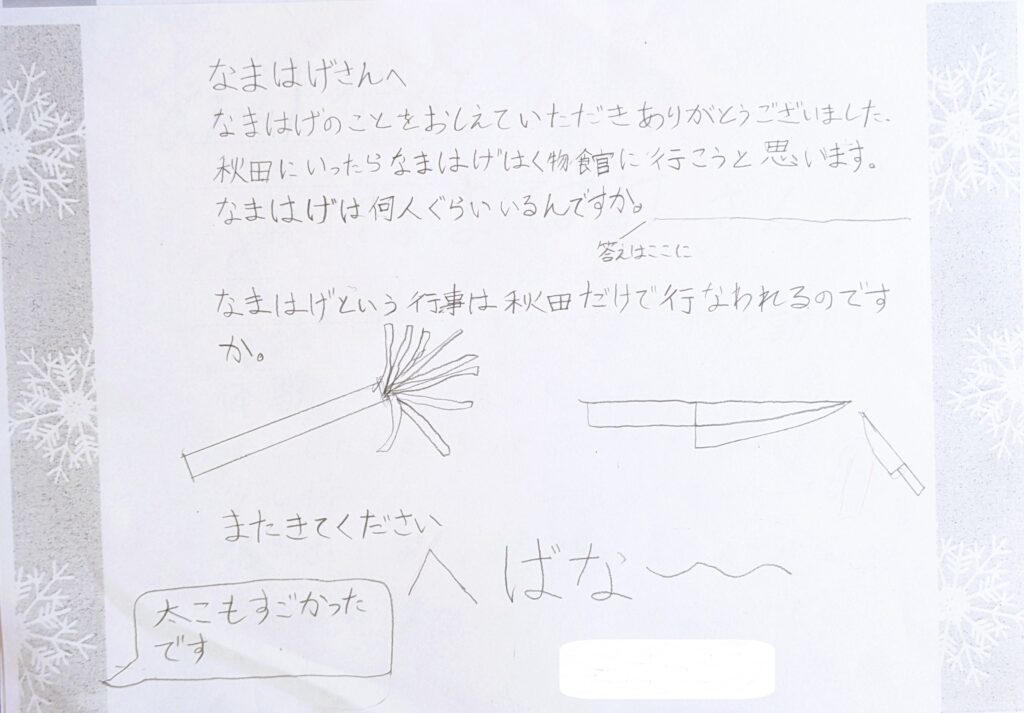 なまはげさんへ
なまはげのことをおしえていただきありがとうございました.
秋田にいったらなまはげはく物食官に行こうと思います。
なまはげは何人ぐらいいるんですか。
答えはここに
なまはげという行事は秋田だけで行なわれるのです
か。
またきてください
へばな〜〜
太こもすごかった
です